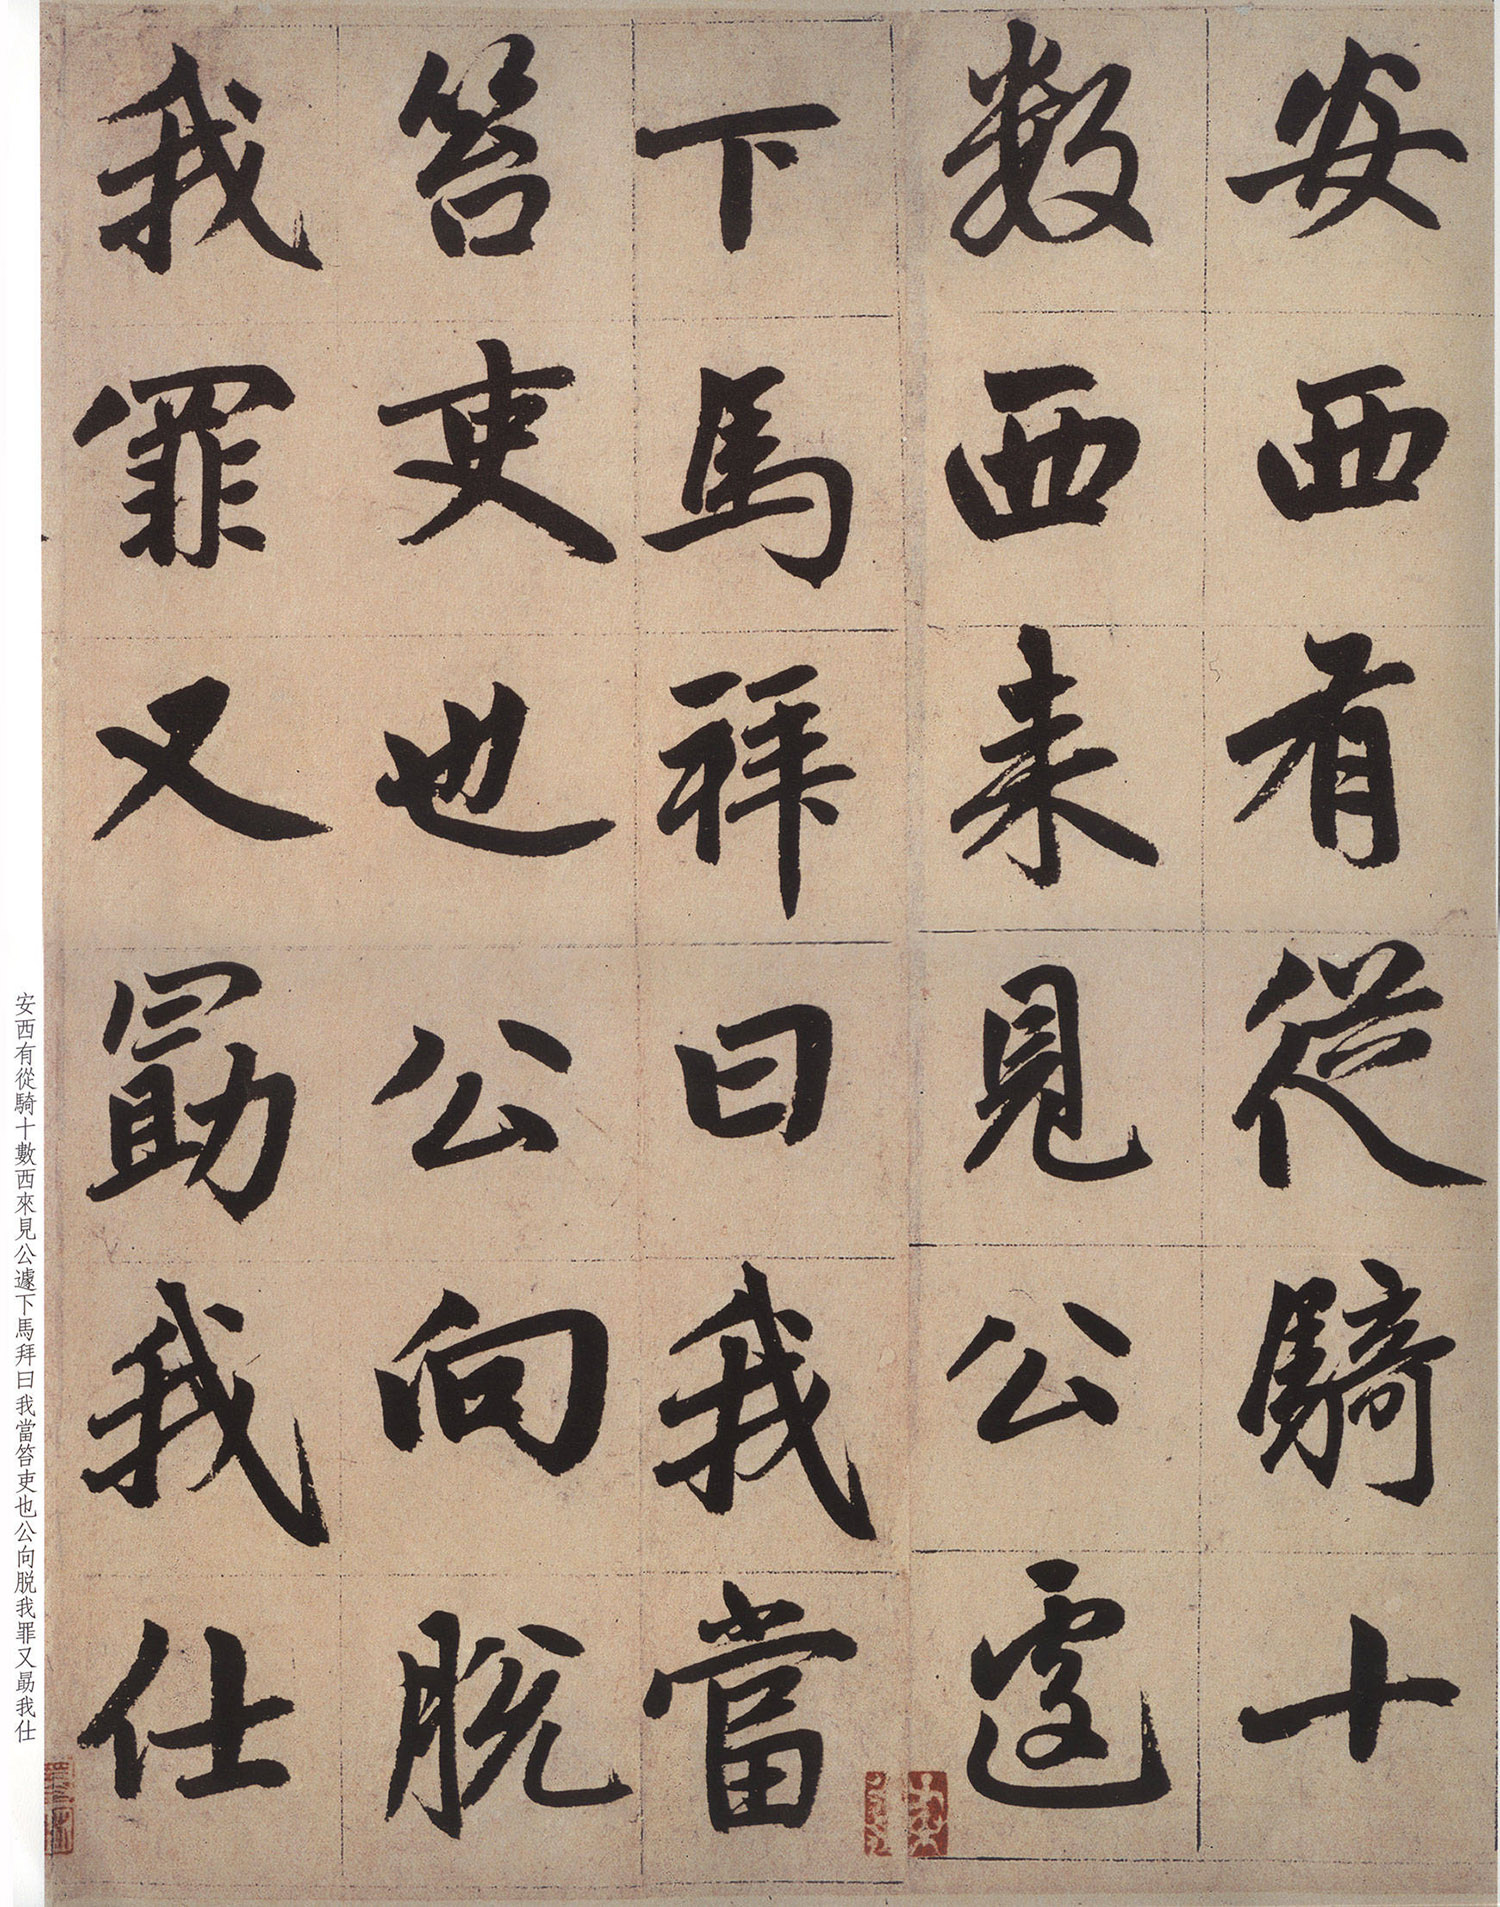 安西有從騎十
數西來見公遽
下馬拜曰我當
笞吏也公向脱
我罪又勗我仕
安西有從騎十數西來見公遽下馬拜曰我當笞吏也公向脱我罪又勗我仕